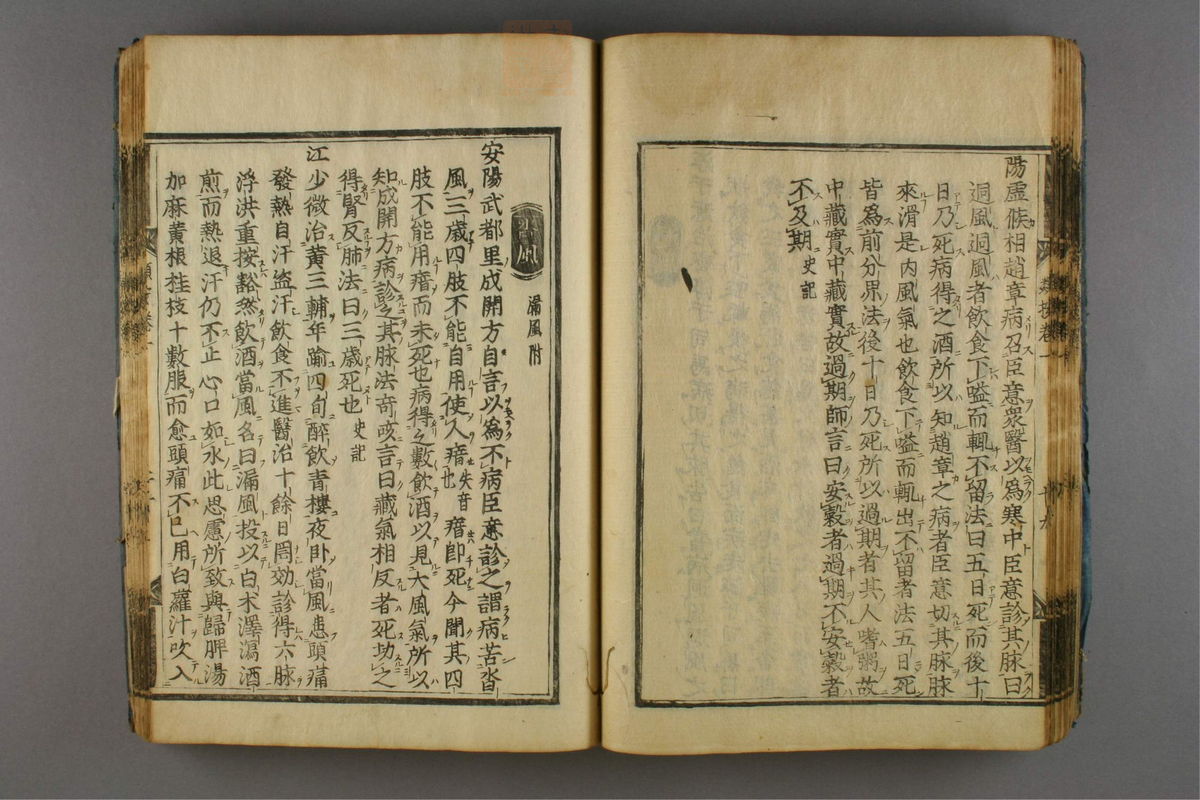 陽虛候相趙章病召臣意衆醫以爲寒中臣意診其脉曰
迵風迵風者飮食下嗌而輒不留法曰五日死而後十
日乃死病得之酒所以知趙章之病者臣意切其脉脉
來滑是内風氣也飮食下嗌而輒出不留者法五日死
皆爲前分界法後十日乃死所以過期者其人嗜粥故
中藏實中藏實故過期師言曰安穀者過期不安穀者
不及期 史記
漏風附
安陽武都里成開方自言以爲不病臣意診之謂病苦沓
風三歲四肢不能自用使人瘖也失音瘖卽死今聞其四
肢不能用瘖而未死也病得之數飮酒以見大風氣所以
知成開方病診之其脉法奇咳言曰藏氣相反者死切之
得腎反肺法曰三歲死也 史記
江少微治黃三輔年踰四旬醉飮靑樓夜卧當風患頭痛
發熱自汗盜汗飮食不進醫治十餘日罔効診得六脉
浮洪重按豁然飮酒當風名曰漏風投以白术澤瀉酒
煎而熱退汗仍不止心口如氷此思慮所致與歸脾湯
加麻黃根桂枝十數服而愈頭痛不已用白蘿汁吹入